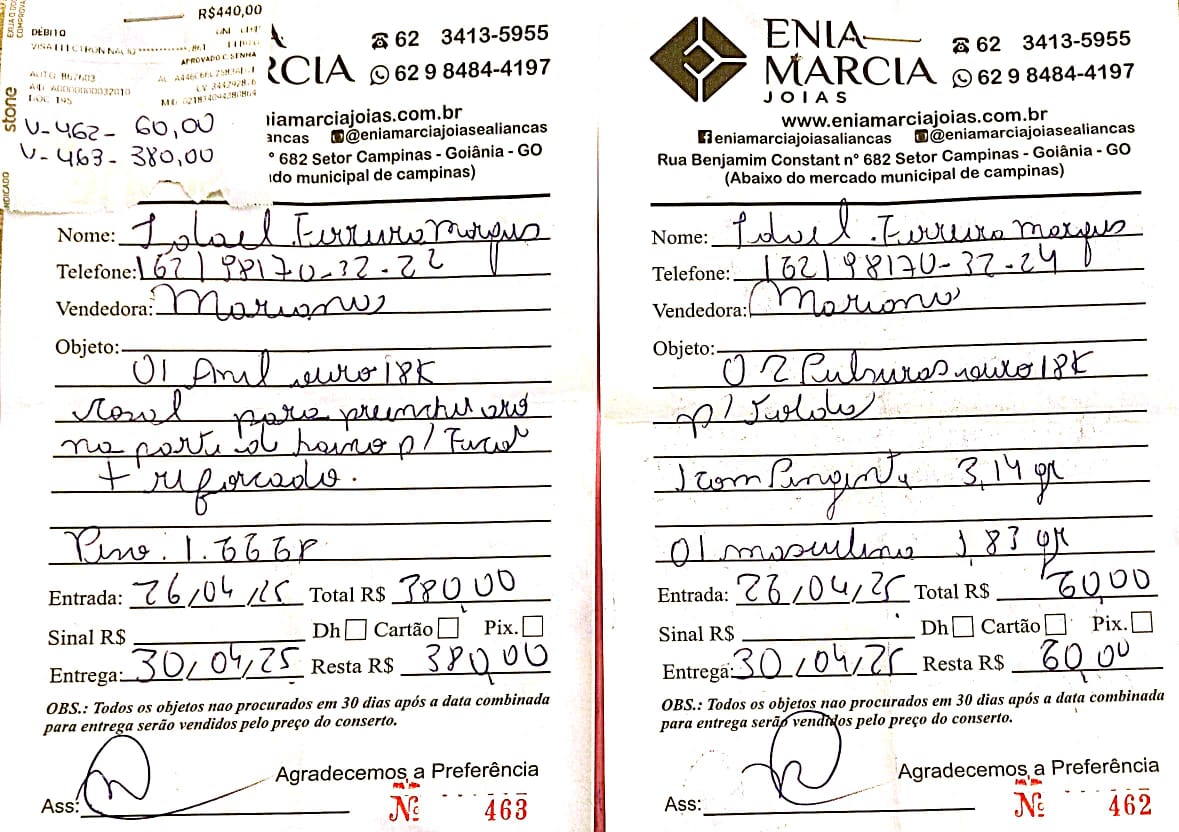 R$440,00
DÉBITO
APROVADO C SENHA
stone
V-462- 60,00
V-463- 380,00
RCIA
62 3413-5955
62 9 8484-4197
niamarciajoias.com.br
ancas @eniamarciajoiasealiancas
º 682 Setor Campinas - Goiânia - GO
do municipal de campinas)
Nome:
Telefone: (62) 98170-32-22
Vendedora: Mariana
Objeto:
01 Anel ouro 18K
para preencher ouro
na parte de
+ reforçado.
Entrada: 26/04/25 Total R$ 380,00
Sinal R$ Dh Cartão Pix.
Entrega: 30/04/25 Resta R$ 380,00
OBS.: Todos os objetos nao procurados em 30 dias após a data combinada
para entrega serão vendidos pelo preço do conserto.
Agradecemos a Preferência
Ass:
Nº 463
ENIA
MARCIA
JOIAS
62 3413-5955
62 9 8484-4197
www.eniamarciajoias.com.br
eniamarciajoiasaliancas @eniamarciajoiasealiancas
Rua Benjamim Constant nº 682 Setor Campinas - Goiânia - GO
(Abaixo do mercado municipal de campinas)
Nome:
Telefone: (62) 98170-32-24
Vendedora: Mariana
Objeto:
02 Pulseiras ouro 18K
p/ Soldar
1 com Pingente 3,14 gr
01 masculina 1,83 gr
Entrada: 26/04/25 Total R$ 60,00
Sinal R$ Dh Cartão Pix.
Entrega: 30/04/25 Resta R$ 60,00
OBS.: Todos os objetos nao procurados em 30 dias após a data combinada
para entrega serão vendidos pelo preço do conserto.
Agradecemos a Preferência
Ass:
Nº 462